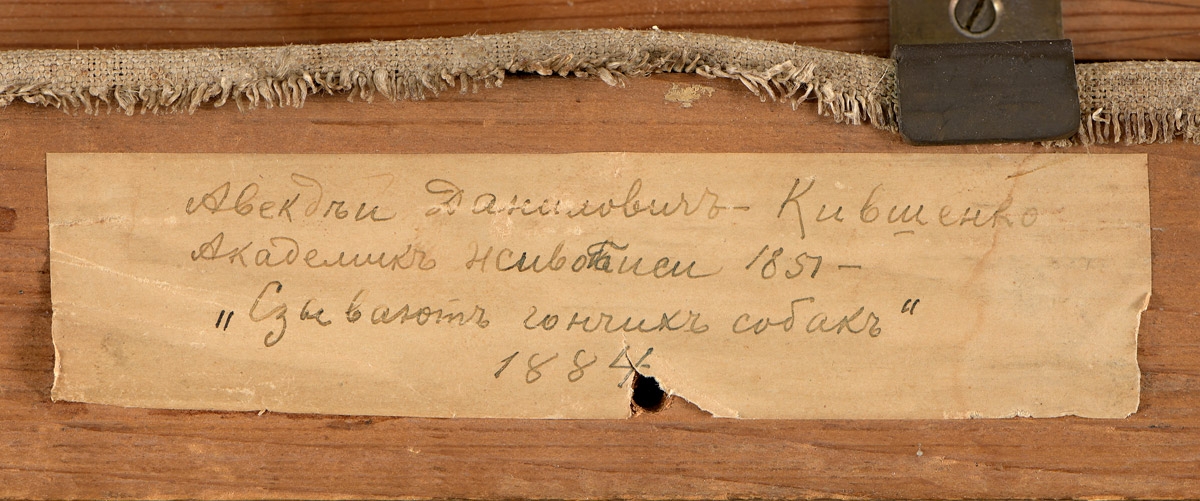 Авекдѣи Даниловичъ – Кившенко
Академикъ живописи 1851 –
„Сзываютъ гончихъ собакъ“
1884